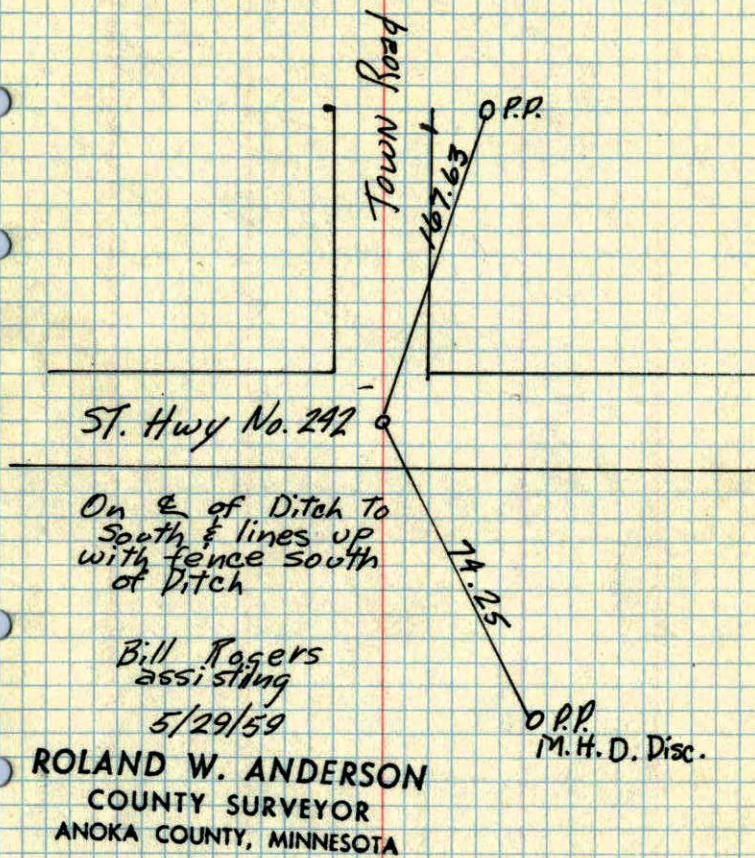 Town Road
P.P.
167.63
ST. Hwy No. 242
On ℄ of Ditch To
South & lines up
with fence south
of Ditch
74.25
Bill Rogers
assisting
5/29/59
P.P.
M.H.D. Disc.
ROLAND W. ANDERSON
COUNTY SURVEYOR
ANOKA COUNTY, MINNESOTA